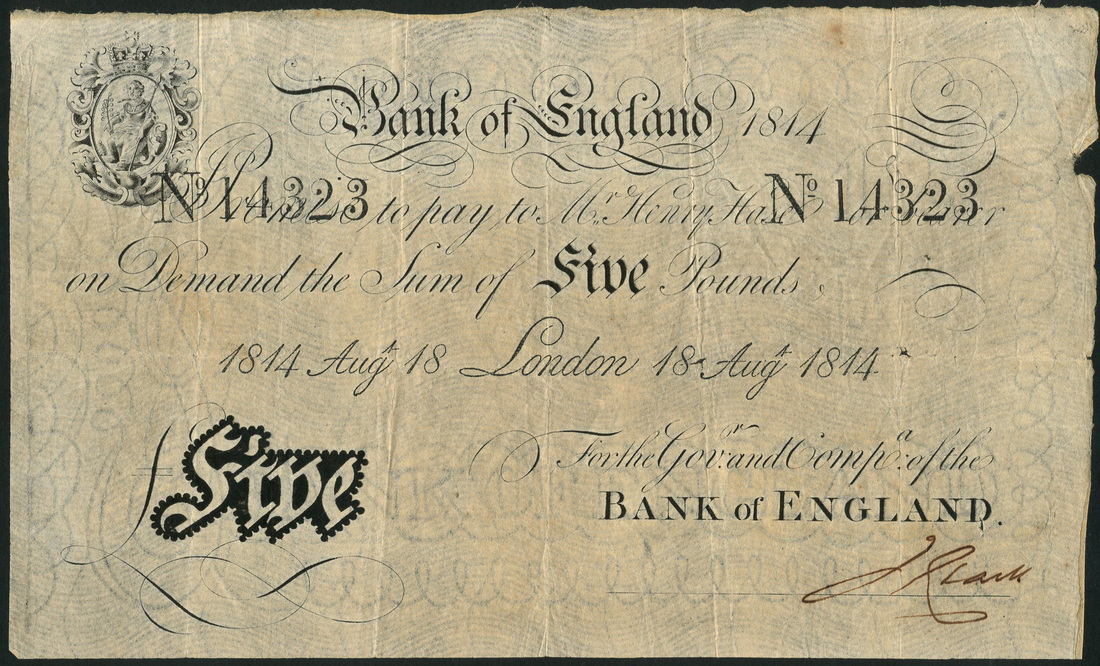 Bank of England 1814
Nº 14323 Nº 14323
I Promise to pay to Mr. Henry Hase or bearer
on Demand the Sum of Five Pounds
1814 Augt 18 London 18 Augt 1814
For the Govr. and Compa. of the
£ Five
BANK of ENGLAND.